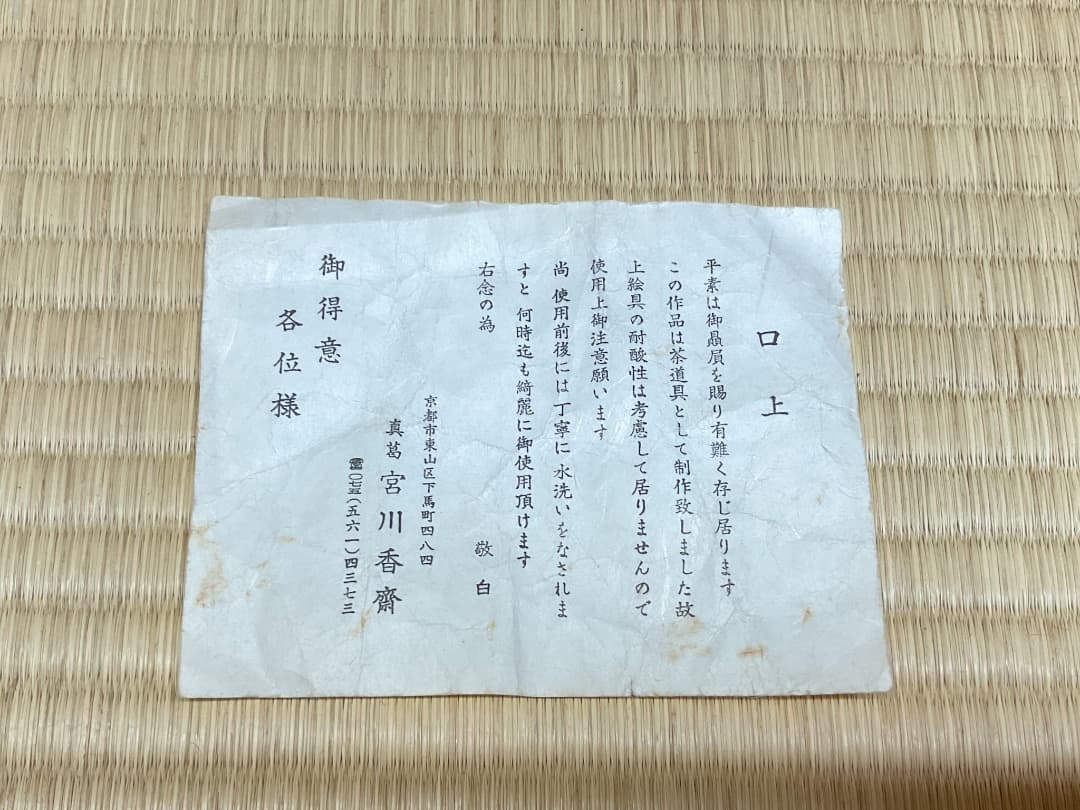 口上
平素は御贔屓を賜り有難く存じ居ります
この作品は茶道具として制作致しました故
上絵具の耐酸性は考慮して居りませんので
使用上御注意願います
尚 使用前後には丁寧に水洗いをなされま
すと 何時迄も綺麗に御使用頂けます
右念の為
敬白
京都市東山区下馬町四八四
真葛 宮川香齋
☎〇七五(五六一)四三七三
御得意
各位様